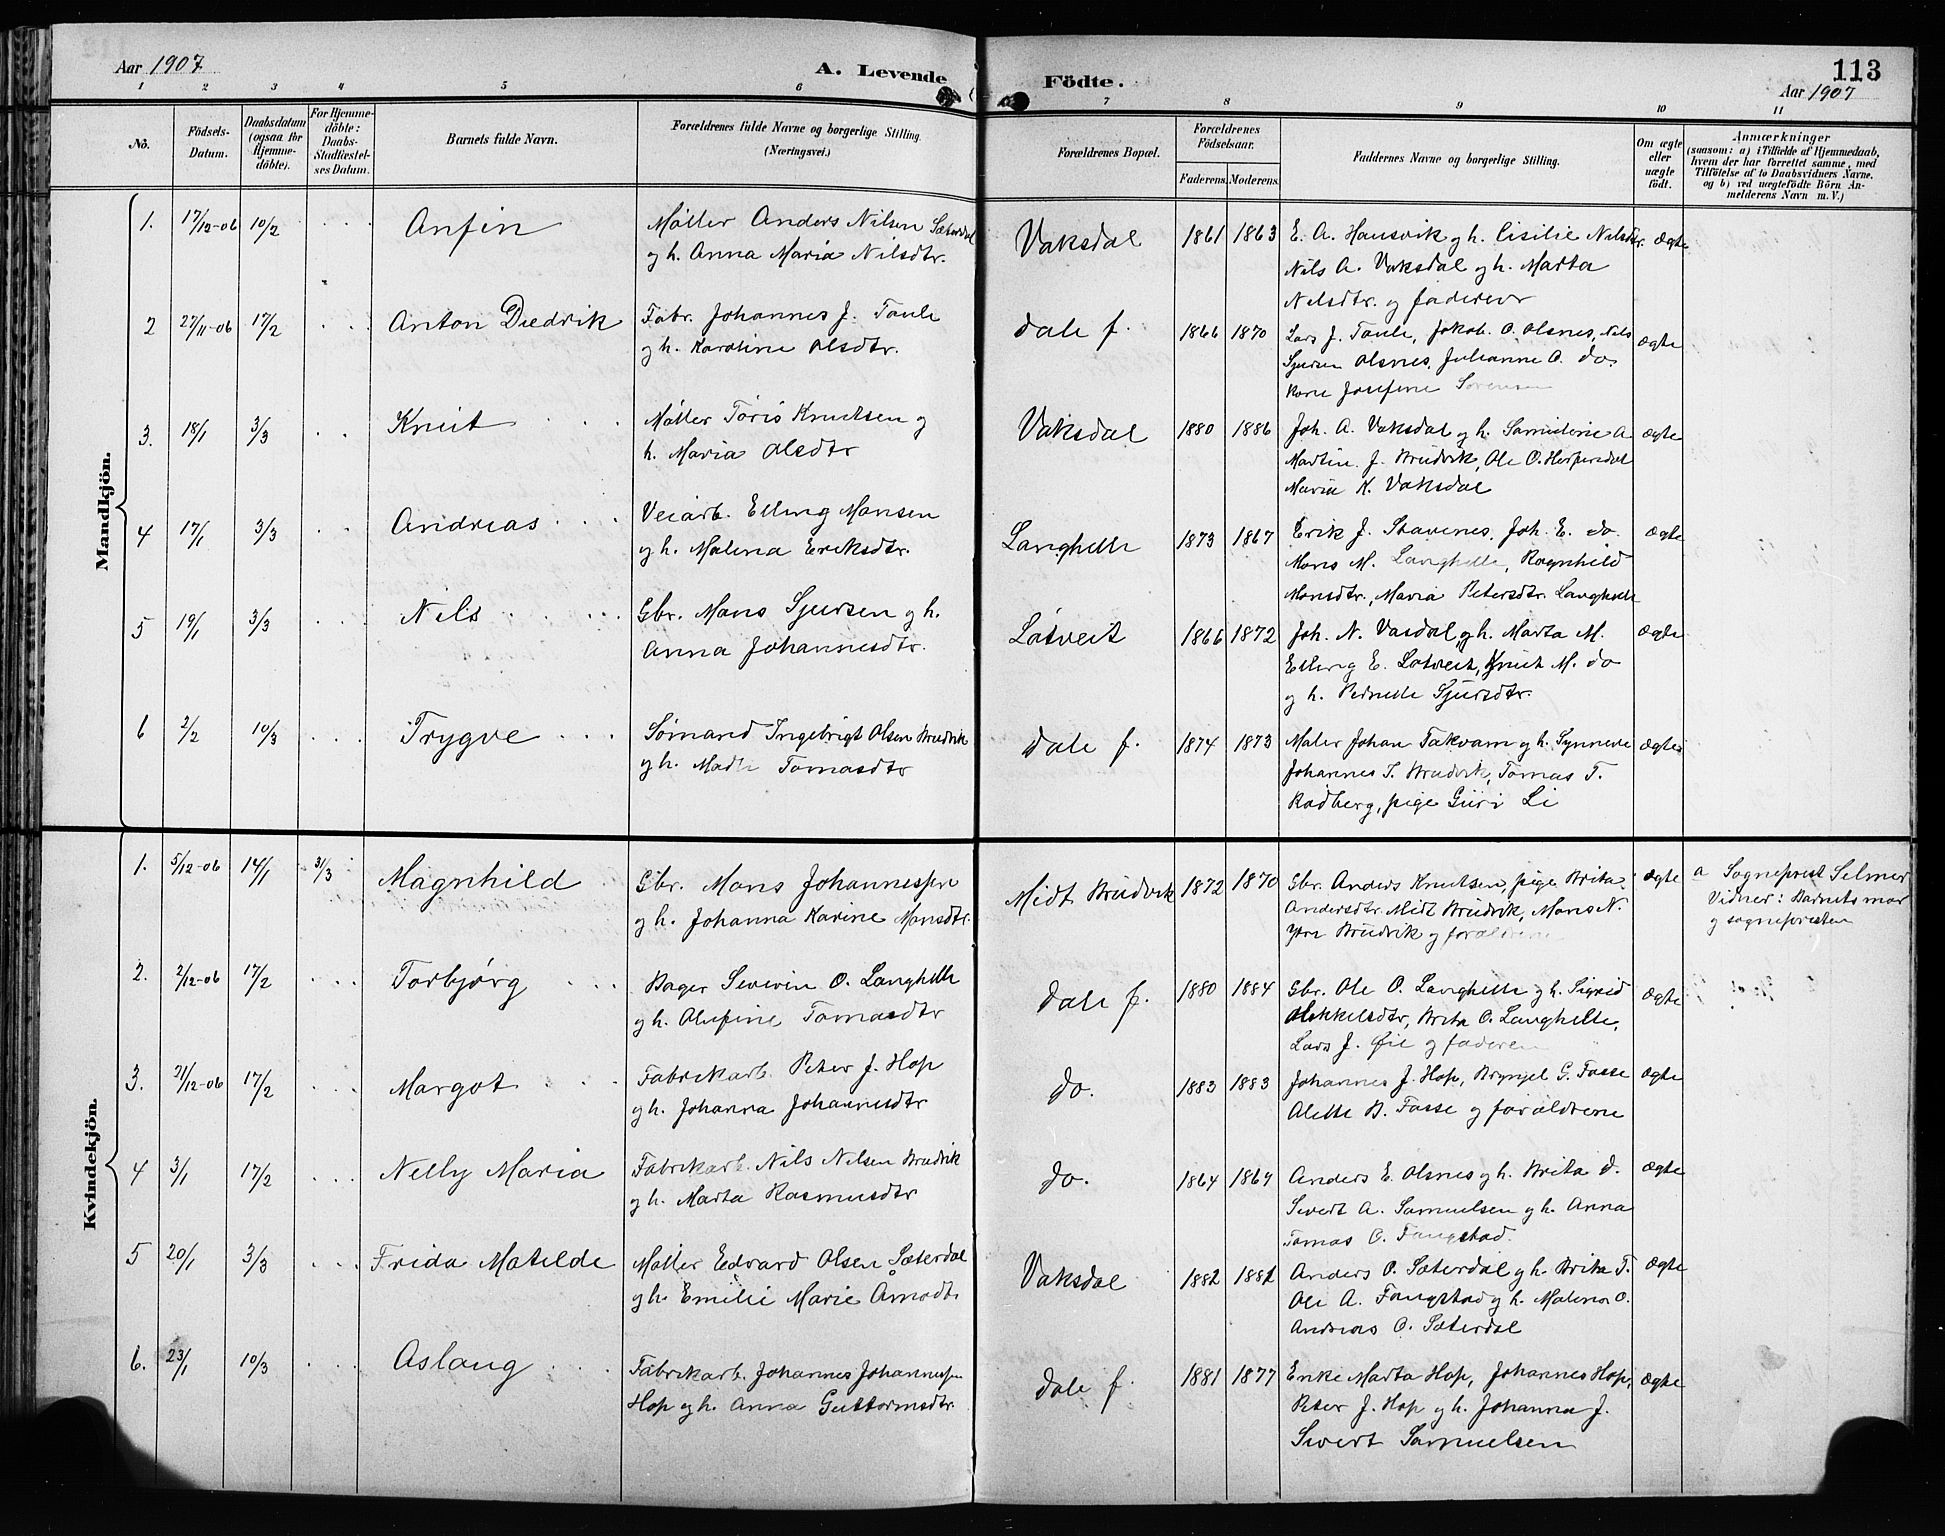 Aar 1907
A. Levende
Födte.
113
Aar 1907
1 2 3 4 5 6 7 8 9 10 11
No.
Födsels-Datum.
Daabsdatum (ogsaa for Hjemme-döbte).
For Hjemme-döbte: Daabs-Stadfæstel-ses Datum.
Barnets fulde Navn.
Forældrenes fulde Navne og borgerlige Stilling.
(Næringsvei.)
Forældrenes Bopæl.
Forældrenes Födselsaar.
Faderens. Moderens.
Faddernes Navne og borgerlige Stilling.
Om ægte eller uægte födt.
Anmærkninger
(saasom: a) i Tilfælde af Hjemmedaab, hvem der har forrettet samme, med Tilföielse af to Daabsvidners Navne, og b) ved uægtefödte Börn An-melderens Navn m. V.)
Mandkjön.
1. 17/12-06 10/2 Anfin
Møller Anders Nilsen Sæterdal
og h. Anna Maria Nilsdtr.
Vaksdal 1861 1863
E. A. Hausvik og h. Cisilie Nilsdtr.
Nils A. Vaksdal og h. Marta
Nilsdtr. og faderen
ægte
2 27/11-06 17/2 Anton Diedrik
Fabr. Johannes J. Toule
og h. Karoline Olsdtr.
Dale f. 1866 1870
Lars J. Toule, Jakob O. Olsnes, Nils
Sjursen Olsnes, Julianne O. do.
Josefine Sørensen
ægte
3. 18/1 3/3 Knut
Møller Toris Knutsen og
h. Maria Olsdtr
Vaksdal 1880 1886
Joh. A. Vaksdal og h. A.
Martin J. Brudvik, Ole O. Herfindal
Maria K. Vaksdal
ægte
4 17/1 3/3 Andreas
Veiarb. Elling Monsen
og h. Malena Eriksdtr.
Langhelle 1873 1867
Erik J. Stavenes, Joh. E. do.
Mons M. Langhelle, Ragnhild
Monsdtr., Maria Petersdtr. Langhelle
ægte
5 19/1 3/3 Nils
Gbr. Mons Sjursen og h.
Anna Johannesdtr.
Løtveit 1866 1872
Joh. N. Vasdal og h. Marta M.
Elling E. Løtveit, Knut M. do
og h. Pernelle Sjursdtr.
ægte
6 2/2 10/3 Trygve
Sømand Ingebrigt Olsen Brudvik
og h. Tomasdtr
Dale f. 1874 1873
Maler Johan Takvam og h. Synneve
Johannes T. Brudvik, Tomas T.
Rødberg, pige Guri Li
ægte
Kvindekjön.
1. 5/12-06 14/1 31/3 Magnhild
Gbr. Mons Johannessen
og h. Johanna Karine Monsdtr.
Midt Brudvik 1872 1870
Gbr. Anders Knutsen, pige Brita
Andersdtr. Midt Brudvik, Mons N.
Ytre Brudvik og forældrene
ægte
a Sogneprest Selmer
Vidner: Barnets mor
og sognepresten
2. 2/12-06 17/2 Torbjørg
Bager Severin O. Langhelle
og h. Olufine Tomasdtr
Dale f. 1880 1884
Gbr. Ole O. Langhelle og h. Sigrid
Brita O. Langhelle,
Lars J. Øie og faderen
ægte
3. 31/12-06 17/2 Margot
Fabrikarb. Peter J. Hop
og h. Johanna Johannesdtr
do. 1883 1883
Johannes J. Hop, Brynjel G. Fosse
Alette B. Fosse og forældrene
ægte
4 3/1 17/2 Nelly Maria
Fabrikarb. Nils Nilsen Brudvik
og h. Marta Rasmusdtr
do. 1864 1867
Anders E. Olsnes og h. Brita D.
Sivert A. Samuelsen og h. Anna
Tomas O. Fangstad.
ægte
5 20/1 3/3 Frida Matilde
Møller Edvard Olsen Sæterdal
og h. Emilie Marie Åmodt.
Vaksdal 1882 1882
Anders O. Sæterdal og h. Brita T.
Ole A. Fangstad og h. Malena O.
Andreas O. Sæterdal
ægte
6. 23/1 10/3 Aslaug
Fabrikarb. Johannes Johannessen
Hop og h. Anna Guttormsdtr.
Dale f. 1881 1877
Enke Marta Hop, Johannes Hop,
Peter J. Hop og h. Johanna J.
Sivert Samuelsen
ægte